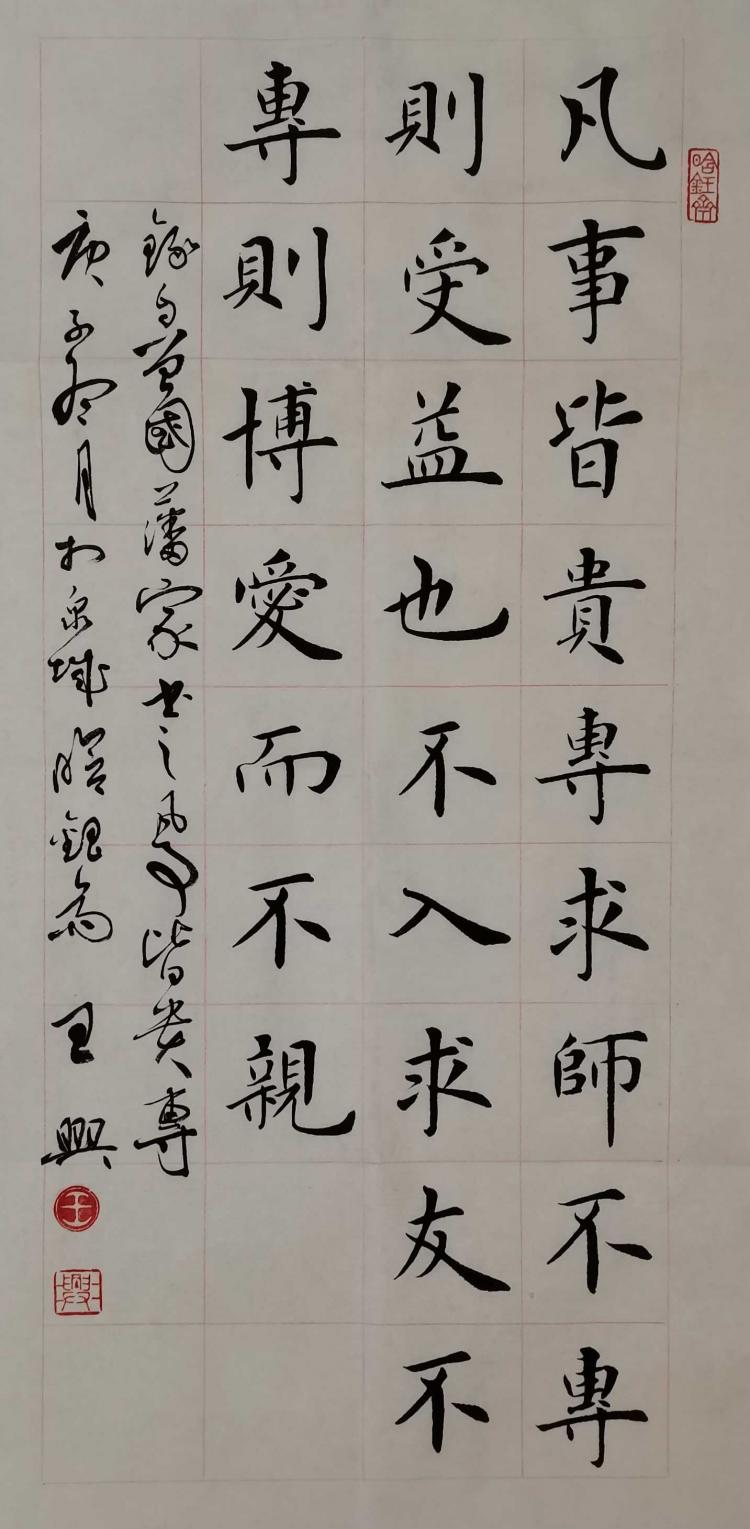 凡事皆貴專求師不專
則受益也不入求友不
專則博愛而不親
錄自曾國藩家書之凡事皆貴專
庚子 月於泉城 王興
王
興